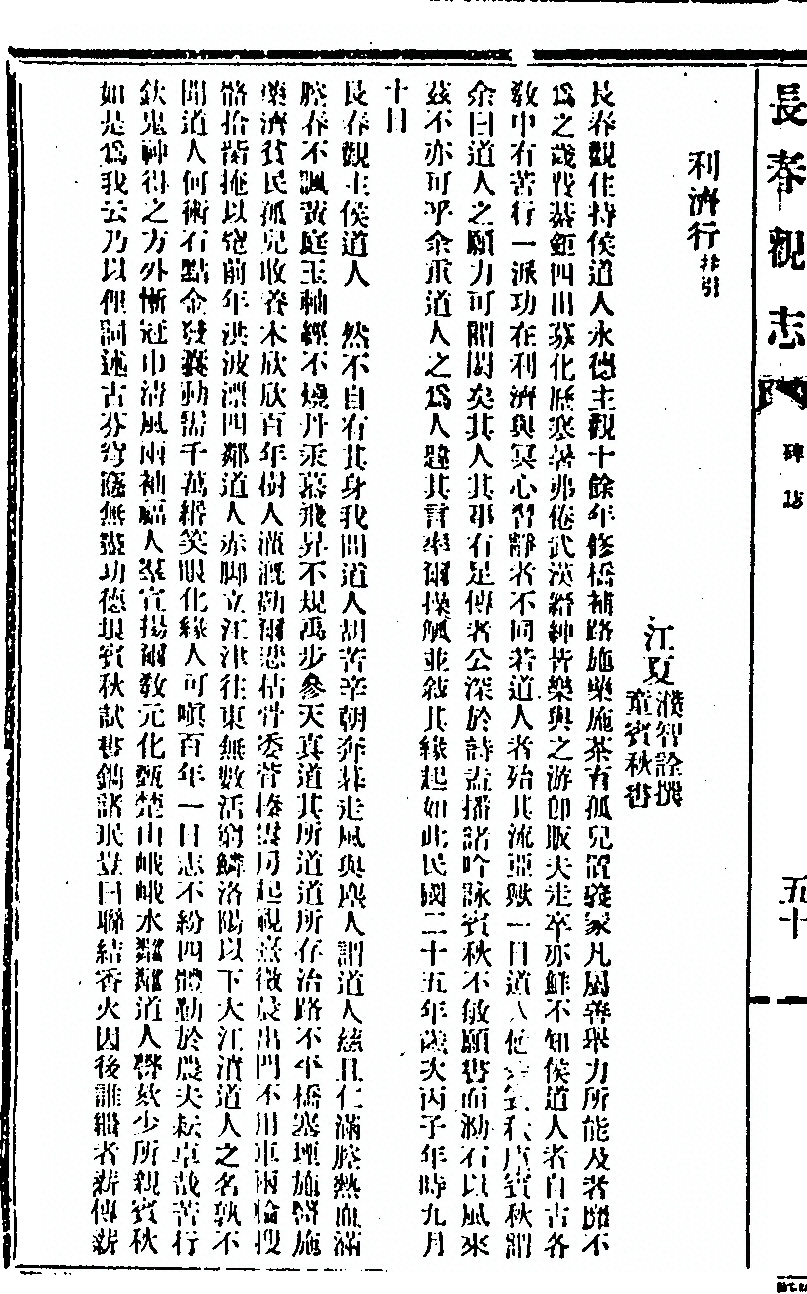 長春觀志
碑誌
五十
利濟行 并引
江夏
濮智詮撰
童賓秋書
長春觀住持侯道人永德主觀十餘年修橋補路施藥施茶育孤兒置義冢凡屬善舉力所能及者罔不
爲之歲戊四出募化歷寒暑弗倦武漢縉紳皆樂與之游卽販夫走卒亦鮮不知侯道人者自古各
敎中有苦行一派功在利濟與冥心習靜者不同若道人者殆其流亞歟一日道人賓秋謂
余曰道人之願力可謂閎矣其人其事有足傳者公深於詩盍播諸吟詠賓秋不敏願書而泐石以風來
茲不亦可乎余重道人之爲人韙其言率爾操觚並敍其緣起如此民國二十五年歲次丙子年時九月
十日
長春觀主侯道人 然不自有其身我問道人胡苦辛朝奔暮走風與塵人謂道人慈且仁滿腔熱血滿
腔春不諷黃庭玉軸經不燒丹汞慕飛昇不規禹步參天真道其所道道所存治路不平橋塞堙施醫施
藥濟貧民孤兒收養木欣欣百年樹人灌溉勤爾悲枯骨委荊榛雲局起視臺微晨出門不用車兩輪搜
骼拾胔掩以窀前年洪波漂四鄰道人赤脚立江津往東無數活窮鱗洛陽以下大江濱道人之名孰不
聞道人何術石點金發囊動需千萬緡笑眼化緣人可嗔百年一日志不紛四體勤於農夫耘卓哉苦行
欽鬼神得之方外慚冠巾清風兩袖福人羣宣揚爾敎元化甄楚山峨峨水粼粼道人謦欬少所親賓秋
如是爲我云乃以俚詞述古芬穹窿無盡功德垠賓秋試書鐫諸珉豈曰聯結香火因後誰繼者薪傳薪